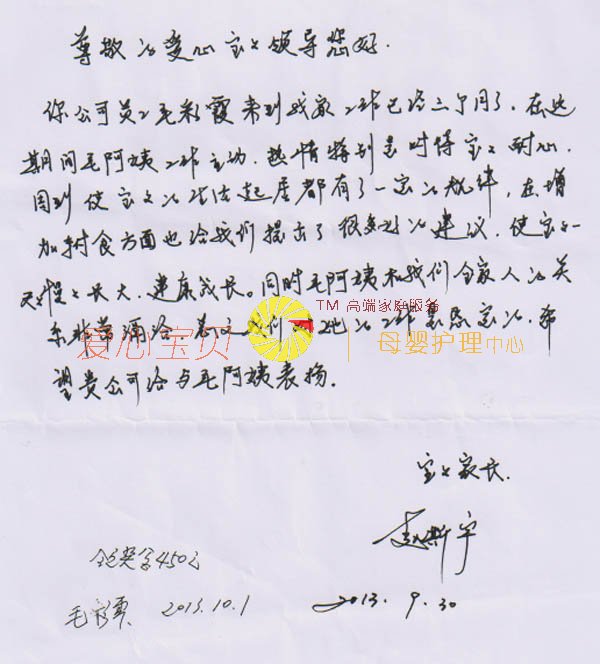 尊敬的爱心宝宝领导您好.
你公司员工毛彩霞来到我家工作已经三个月了. 在此
期间毛阿姨工作主动. 热情特别是对待宝宝耐心.
周到使宝宝的生活起居都有了一定的规律, 在增
加辅食方面也给我们提出了很多好的建议. 使宝宝一
天天慢慢长大. 建康成长。同时毛阿姨和我们全家人的关
系非常融洽 总之我们对她的工作是肯定的. 希
望贵公司给与毛阿姨表扬.
TM 高端家庭服务
爱心宝贝
母婴护理中心
宝宝家长.
2013. 9. 30
领奖金450元
毛彩霞 2013.10.1